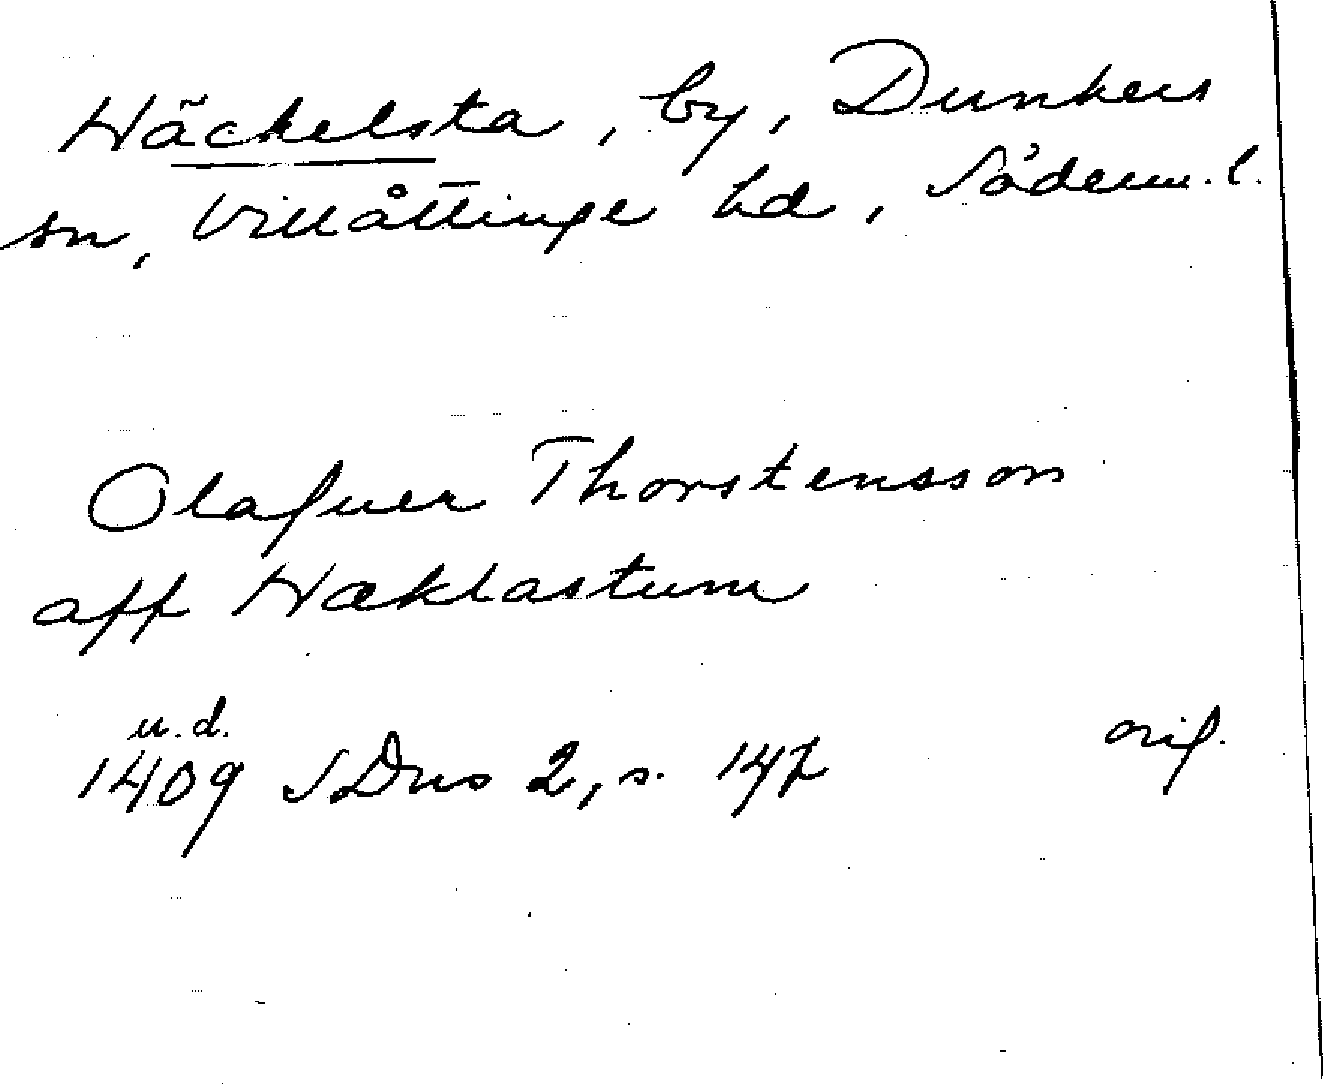 Häckelsta, by, Dunkers
sn, Villåttinge hd, Söderm. l.
Olafuer Thorstensson
aff Hæklastum
u.d.
1409 SDns 2, s. 147 orig.